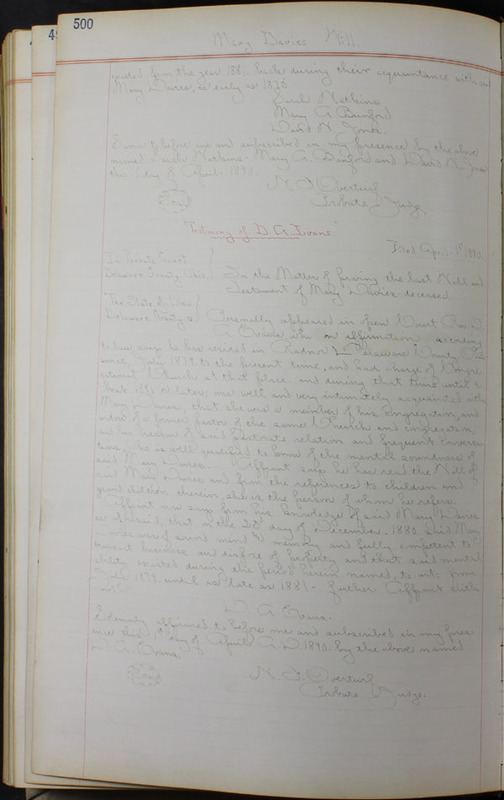 500
Mary Davies Will.
from the year 188 during their acquaintance with
Mary Davies, as early as 1876
Sarah Watkins
Mary A. Banford
David N. Jones
Sworn to before me and subscribed in my presence by the above
named Sarah Watkins - Mary A. Banford and David N. Jones
this day of April 1890.
N. F. Overturf
Probate Judge
Testimony of D. A. Evans
Filed Apr. 1st 1890.
In Probate Court
Delaware County, Ohio. In the Matter of proving the last Will and
Testament of Mary Davies deceased
The State of Ohio
Delaware County ss Personally appeared in open Court Rev. D.
A. Evans, who on affirmation according
to law says he has resided in Radnor Tp Delaware County Ohio
since 1879, to the present time, and had charge of Congre
gational Church at that place and during that time until
about 1881 or later; was well and very intimately acquainted with
Mary Davies, that she was a member of his congregation, and
widow of a former pastor of the same Church and congregation
and by reason of said Pastorate relation and frequent conversa
tions, he is well qualified to know of the mental soundness of
said Mary Davies. Affiant says he has read the Will of
said Mary Davies and from the references to children and
grand children therein, she is the person of whom he refers.
Affiant now says from his knowledge of said Mary Davies
as aforesaid, that on the 28th day of December, 1880 said Mary
Davies was of sound mind & memory and fully competent to
transact business and dispose of property and that said mental
state existed during the period herein named, to wit: from
1879 until as late as 1881 - further Affiant saith
not.
D. A. Evans.
Solemnly affirmed to before me and subscribed in my pres
ence this 1st day of April A.D. 1890. by the above named
D. A. Evans.
N. F. Overturf
Probate Judge.